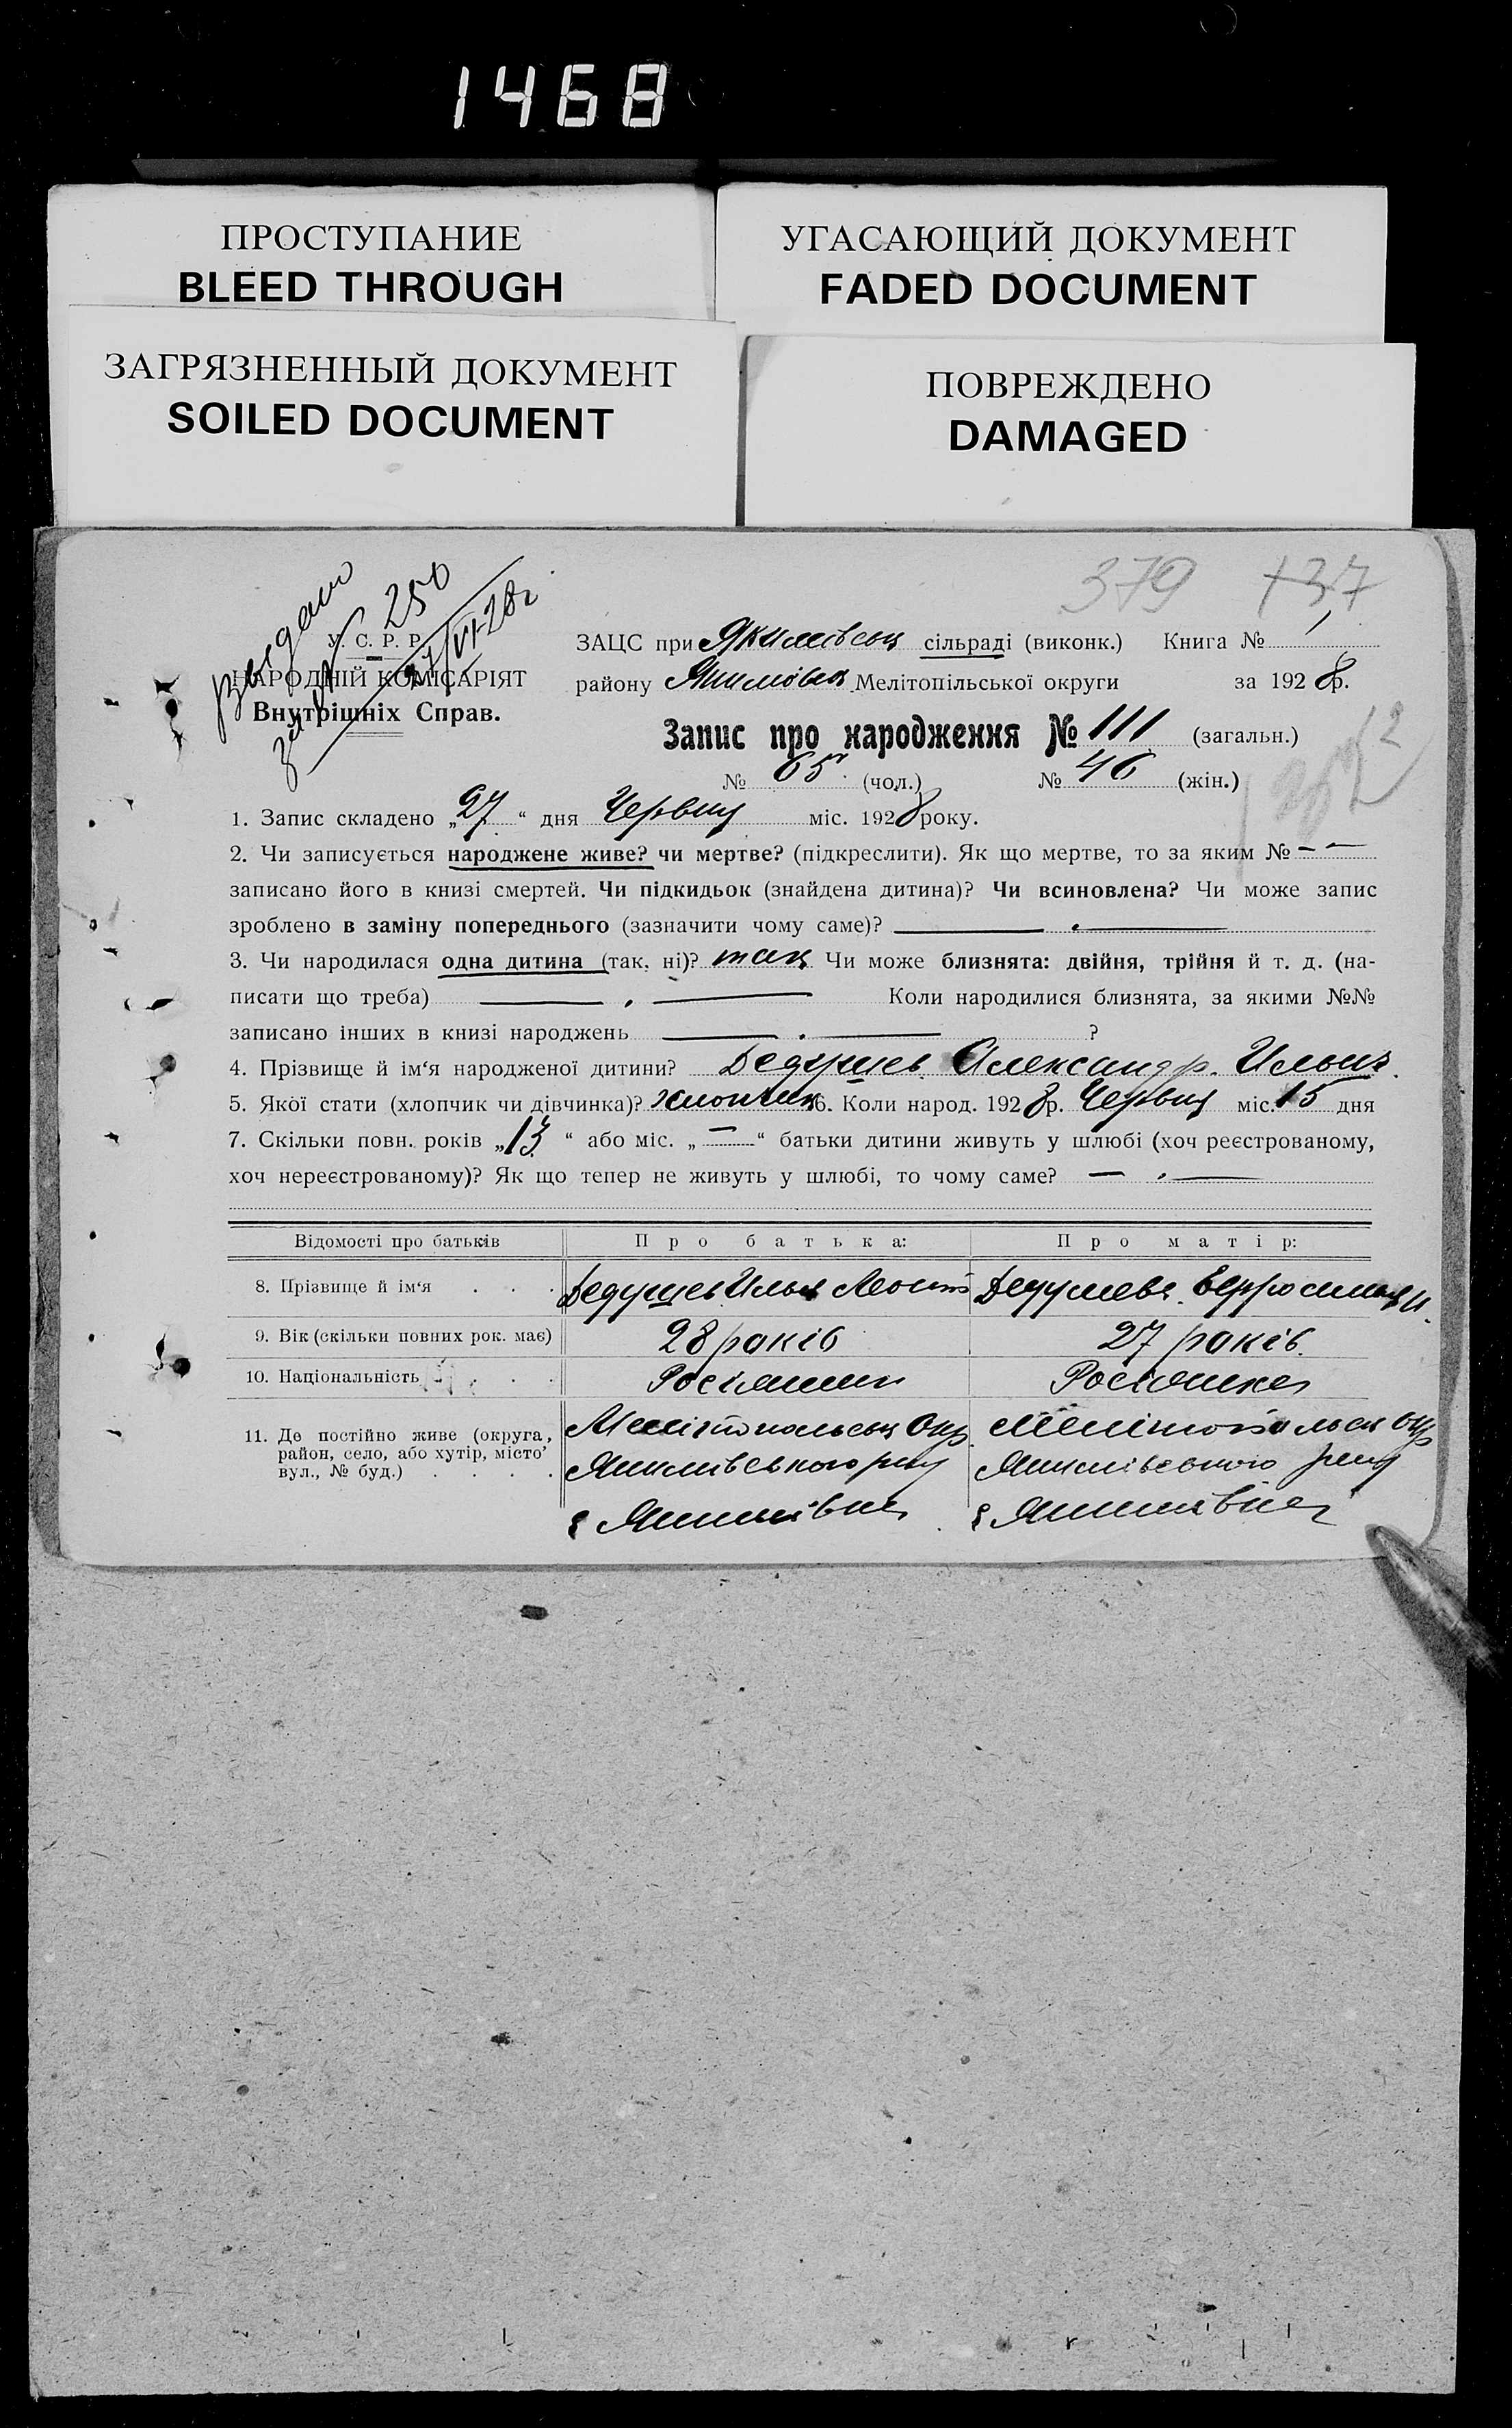 1468
ПРОСТУПАНИЕ
BLEED THROUGH
УГАСАЮЩИЙ ДОКУМЕНТ
FADED DOCUMENT
ЗАГРЯЗНЕННЫЙ ДОКУМЕНТ
SOILED DOCUMENT
ПОВРЕЖДЕНО
DAMAGED
379 +37
Видано
за № 250
27/VI-28г
У. С. Р. Р.
НАРОДНІЙ КОМІСАРІЯТ
Внутрішніх Справ.
ЗАЦС при Якимівськ сільраді (виконк.) Книга № 1
району Якимівськ Мелітопільської округи за 1928 р.
Запис про народження № 111 (загальн.)
№ 65 (чол.) № 46 (жін.)
1. Запис складено „27“ дня Червня міс. 1928 року.
2. Чи записується народжене живе? чи мертве? (підкреслити). Як що мертве, то за яким № — —
записано його в книзі смертей. Чи підкидьок (знайдена дитина)? Чи всиновлена? Чи може запис
зроблено в заміну попереднього (зазначити чому саме)? — . —
3. Чи народилася одна дитина (так, ні)? так Чи може близнята: двійня, трійня й т. д. (на-
писати що треба) — . — Коли народилися близнята, за якими №№
записано інших в книзі народжень — . — ?
4. Прізвище й ім‘я народженої дитини? Дедушев Александр. Ильич.
5. Якої стати (хлопчик чи дівчинка)? хлопчик 6. Коли народ. 1928 р. Червня міс. 15 дня
7. Скільки повн. років „13“ або міс. „—“ батьки дитини живуть у шлюбі (хоч реєстрованому,
хоч нереєстрованому)? Як що тепер не живуть у шлюбі, то чому саме? — . —
Відомості про батьків Про батька: Про матір:
8. Прізвище й ім‘я . . . Дедушев Илья Леонт Дедушева Ефросинья И.
9. Вік (скільки повних рок. має) 28 років 27 років.
10. Національність . . . . Росіянин Росіянка
11. Де постійно живе (округа, район, село, або хутір, місто’ вул., № буд.) . . . .
Мелітопольськ Окр. Мелітопольськ Окр
Якимівського р-ну Якимівського р-ну
с Якимівка с Якимівка